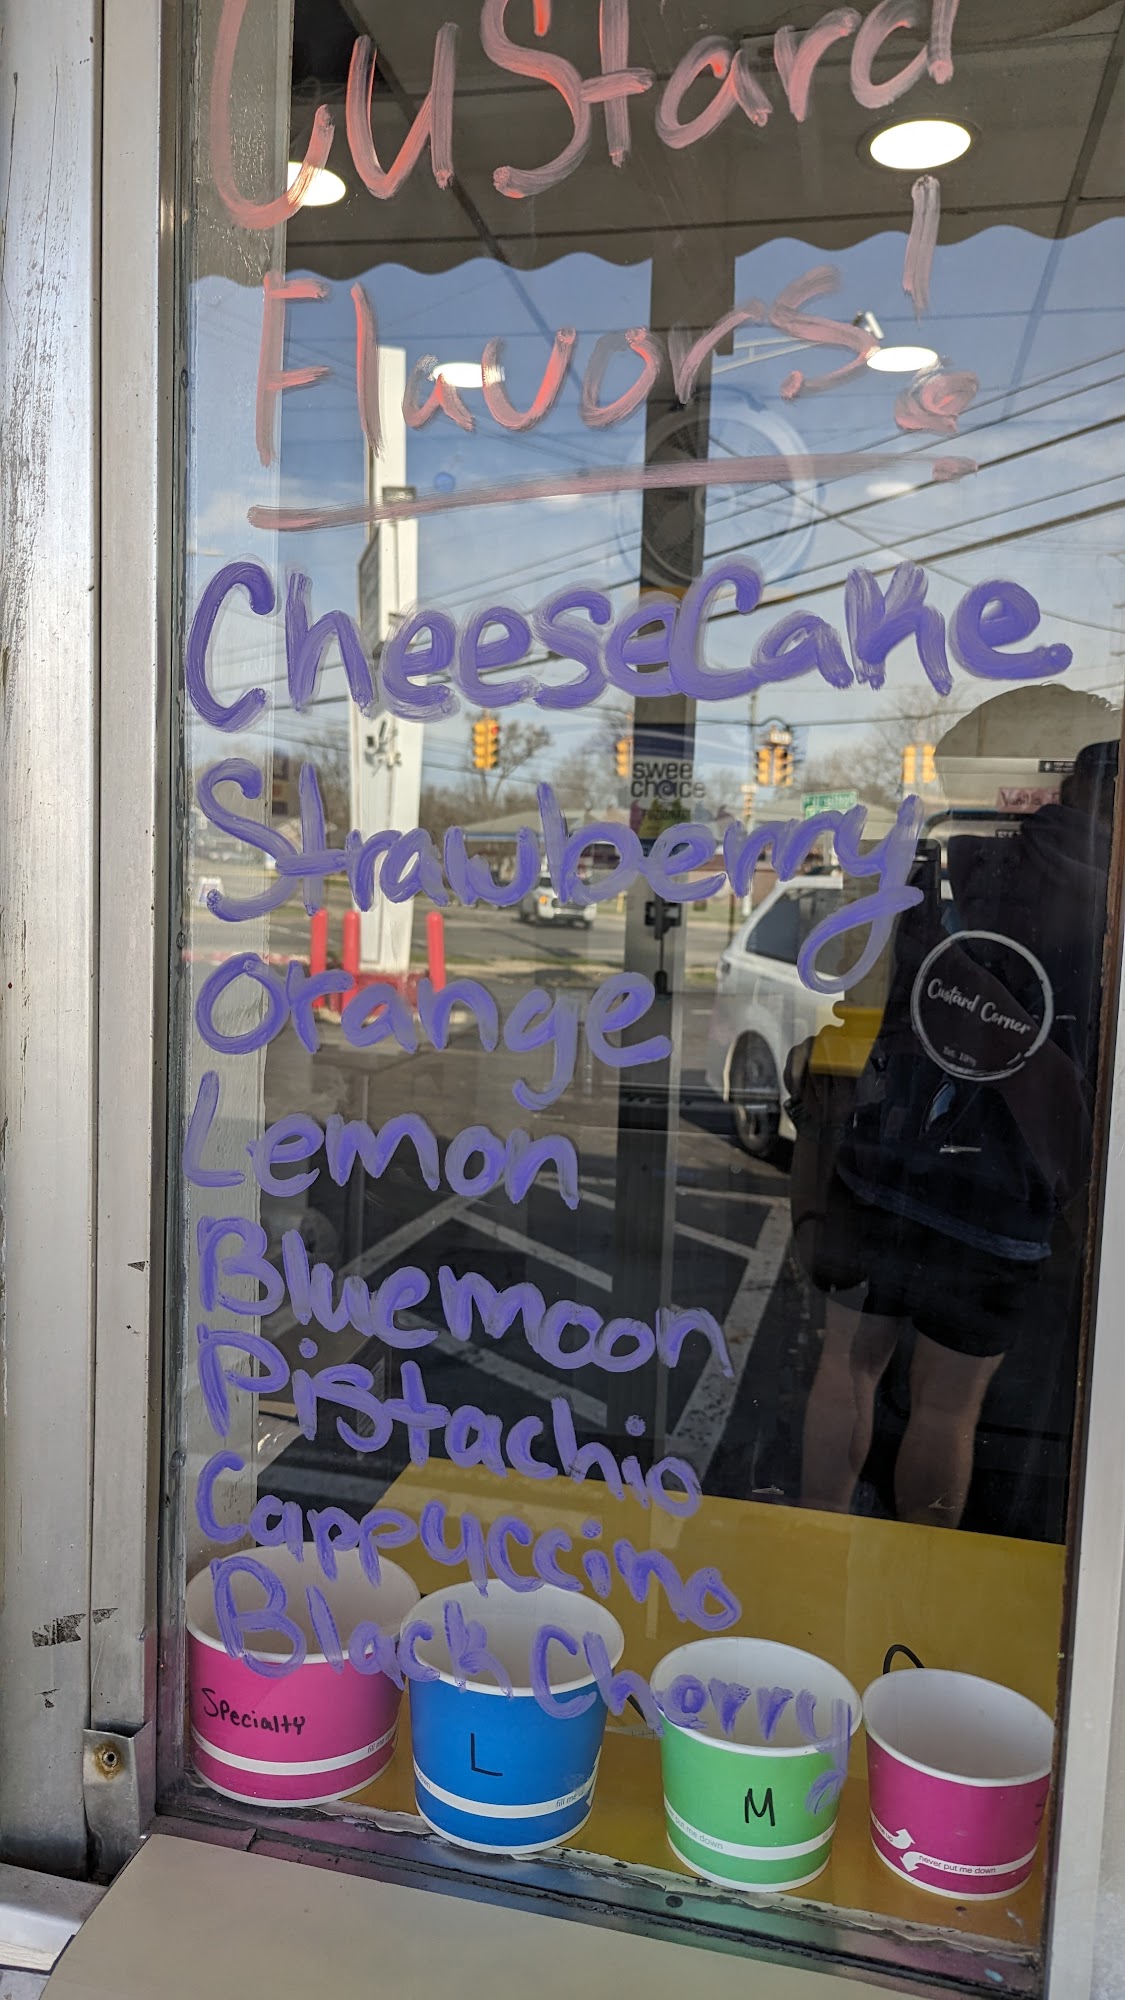 Custard
Flavors!
Cheesecake
Strawberry
Orange
Lemon
Bluemoon
Pistachio
Cappuccino
Black Cherry
swee
choice
Custard Corner
Specialty
L
M
fill me
put me down
never put me down